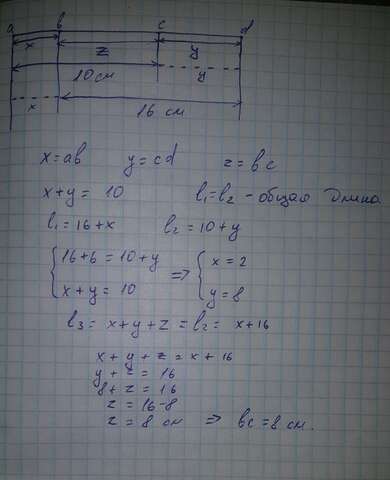 a b c d
x z y
10 см y
x 16 см
x = ab y = cd z = bc
x + y = 10 l₁ = l₂ - общая длина
l₁ = 16 + x l₂ = 10 + y
{ 16 + 6 = 10 + y => { x = 2
x + y = 10 y = 8
l₃ = x + y + z = l₂ = x + 16
x + y + z = x + 16
y + z = 16
8 + z = 16
z = 16 - 8
z = 8 см => bc = 8 см.